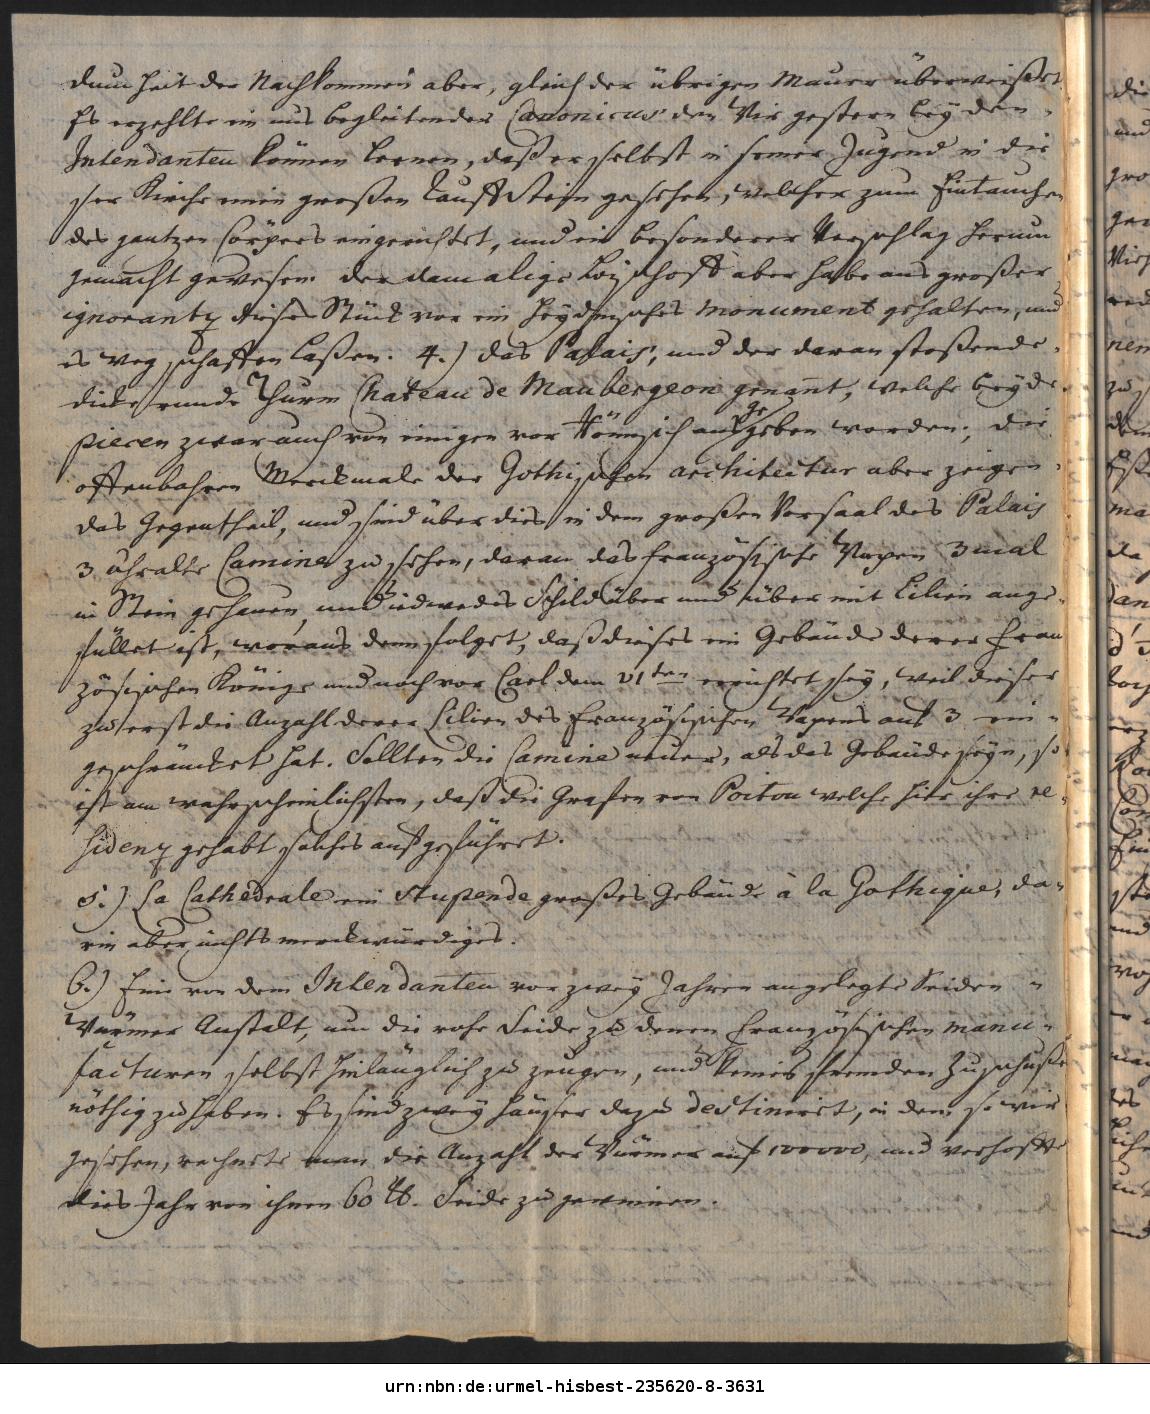 dumheit der Nachkommen aber, gleich der übrigen Mauer überweißet
Es erzehlte ein uns begleitender Canonicus den Wir gestern bey den
Intendanten können lernen, daß er selbst in seiner Jugend in die
ser Kirche einen großen Tauff Stein gesehen, welcher zum Eintauchen
des gantzen Cörpers eingerichtet, und ein besonderer Verschlag herum
gemacht gewesen der damalige Bischoff aber habe aus großer
ignorantz dieses Stück vor ein heydnisches monument gehalten, und
es weg schaffen laßen. 4.) das Palais, und der daran stoßende
dicke runde Thurm Chateau de Maubergeon genant, welche beyde
piecen zwar auch von einigen vor Römisch ausgegeben worden; die
offenbahren Merckmale der Gothischen architectur aber zeigen
das Gegentheil, und sind über dies in dem großen Vorsaal des Palais
3 uhralte Camine zu sehen, daran das französische Wapen 3 mal
in Stein gehauen, und iedwedes Schild über und über mit Lilien ange-
füllet ist, woraus denn folget, daß dieses ein Gebäude derer Fran
zösischen Könige und noch vor Carl dem VIten errichtet sey, weil dieser
zu erst die Anzahl derer Lilien des französischen Wapens auf 3 ein-
geschräncket hat. Sollten die Camine neuer, als das Gebäude seyn, so
ist am wahrscheinlichsten, daß die Grafen von Poitou welche hier ihre re-
sidenz gehabt solches aufgeführet.
5.) La Cathedrale ein stupende großes Gebäude à la Gothique, da-
rin aber nichts merckwürdiges.
6.) Eine von dem Intendanten vor zwey Jahren angelegte Seiden-
Würmer Anstalt, um die rohe Seide zu denen französischen manu-
facturen selbst hinlänglich zu zeugen, und keines fremden Zuschußes
nöthig zu haben. Es sind zwey Häuser dazu destiniret, in dem so wir
gesehen, rechnete man die Anzahl der Würmer auf 100000, und verhoffte
dies Jahr von ihnen 60 ℔. Seide zu gewinnen.
urn:nbn:de:urmel-hisbest-235620-8-3631